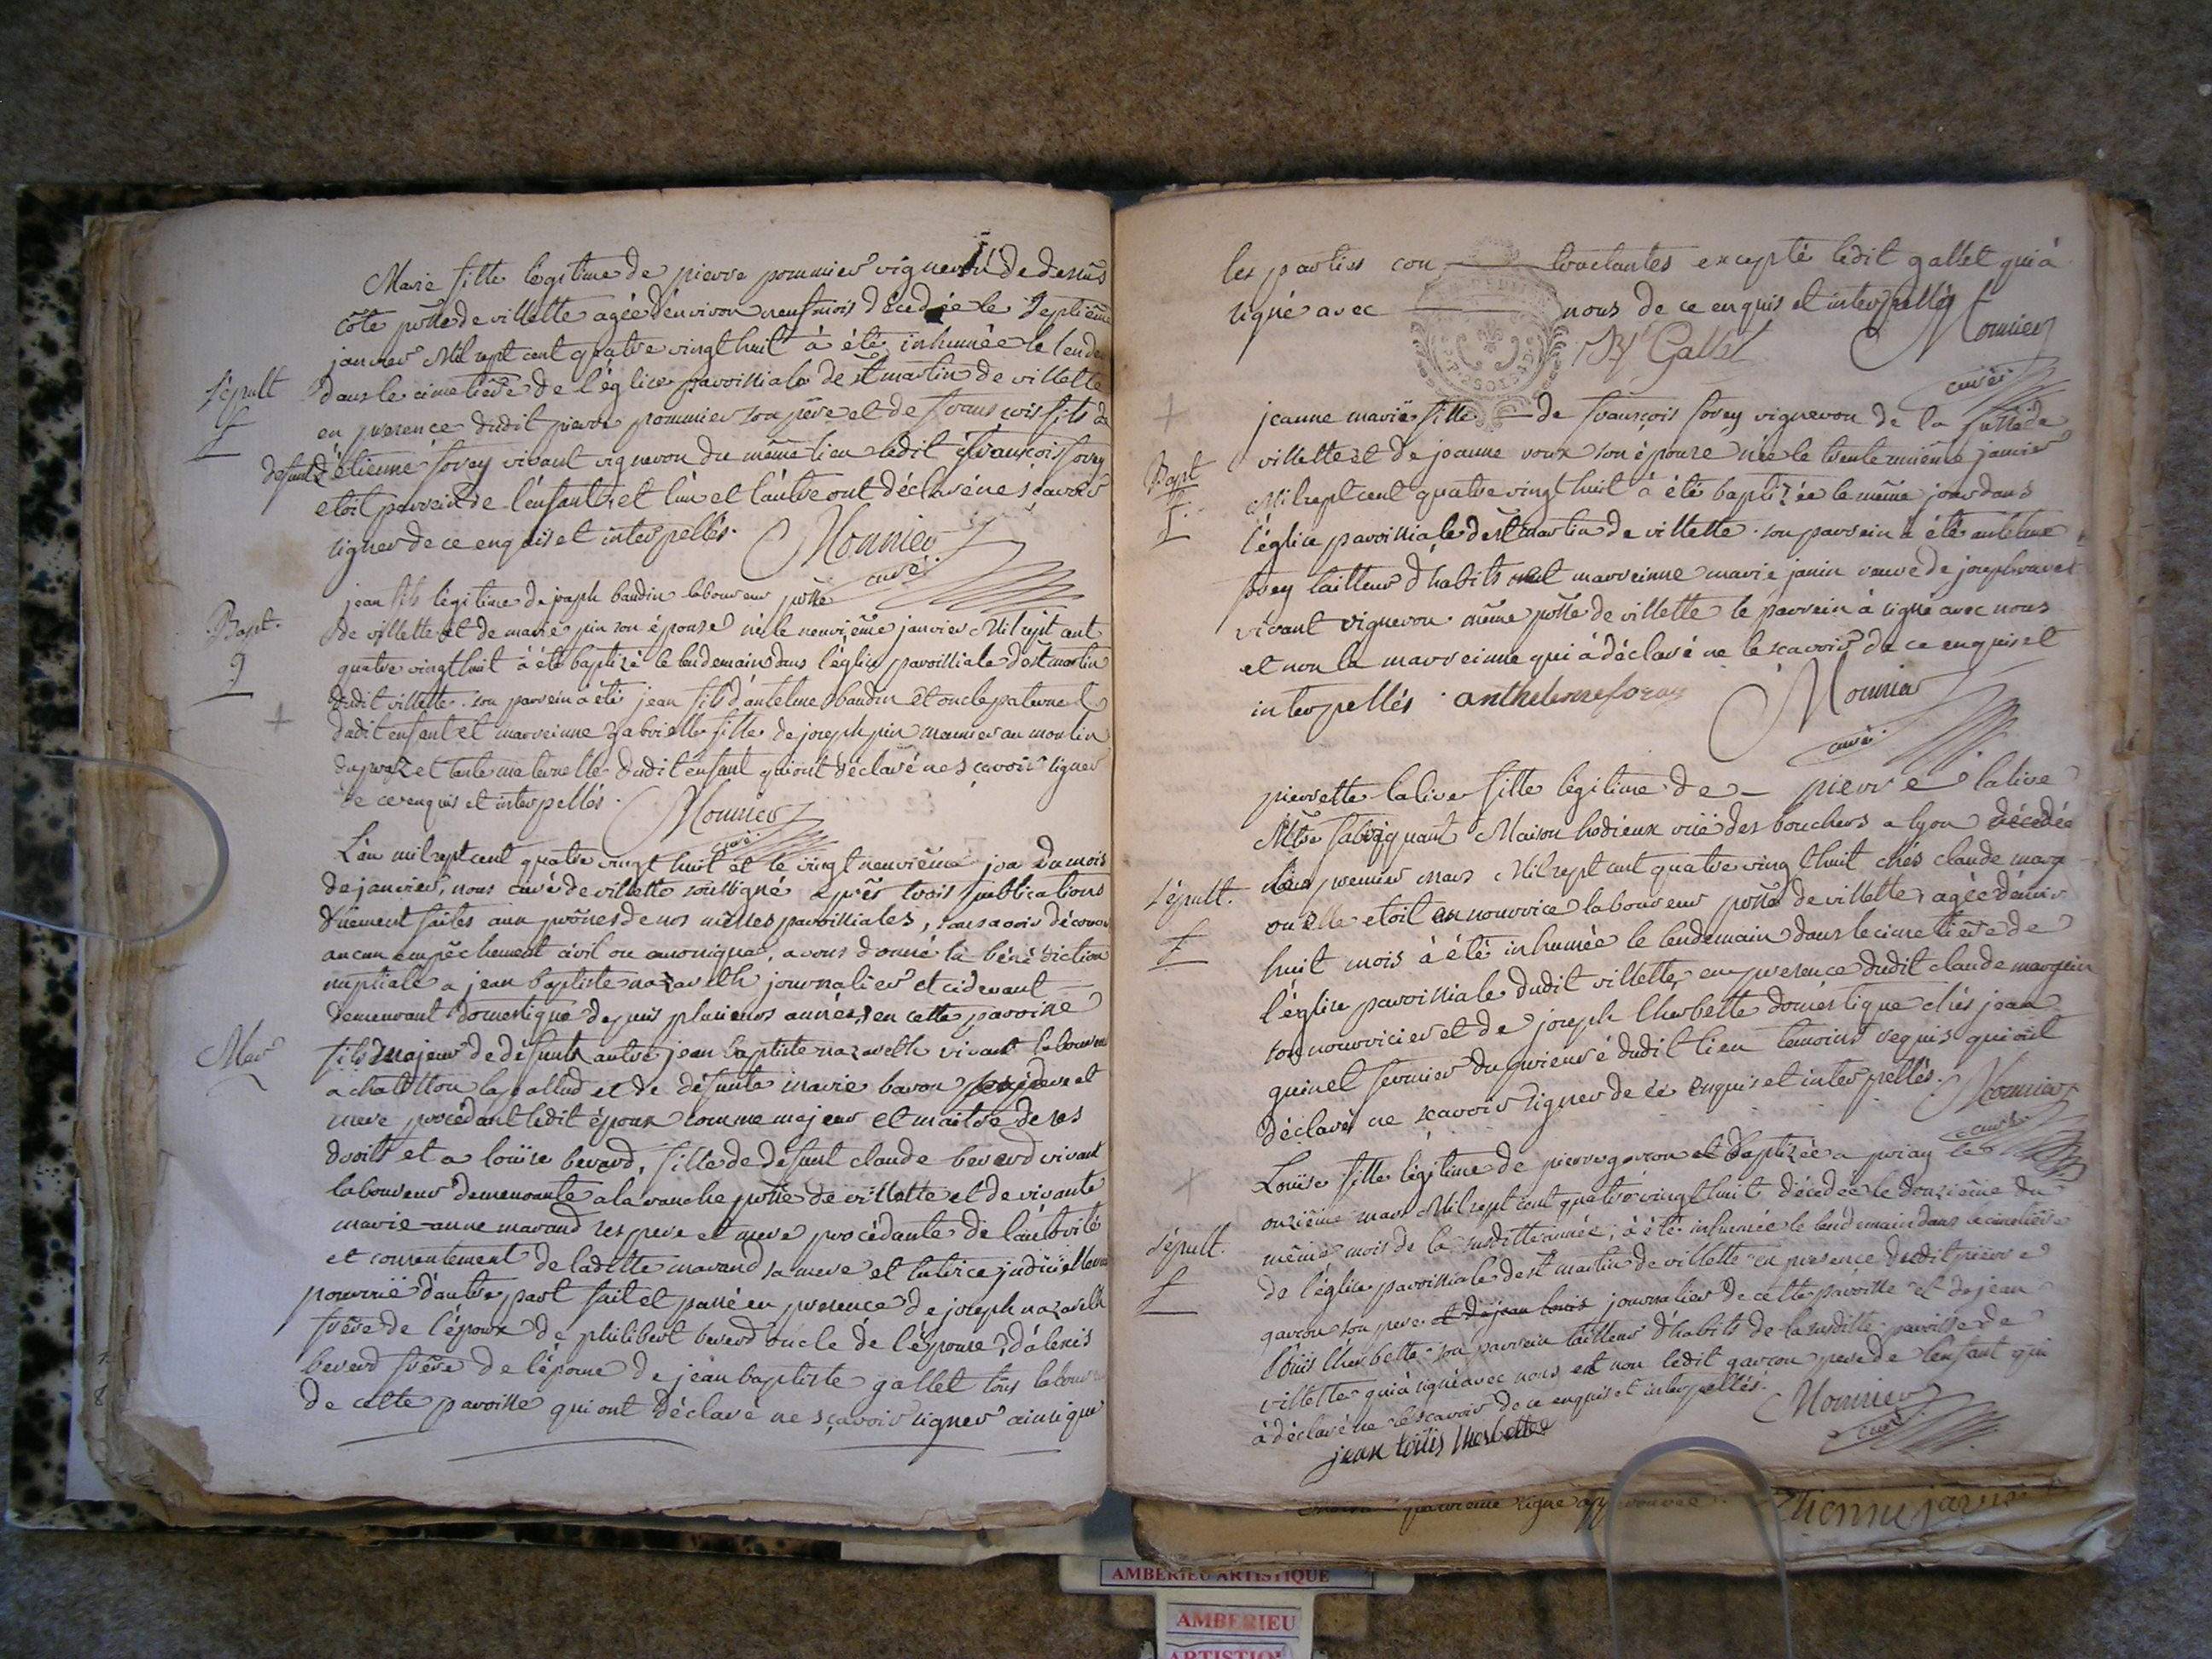 Marie fille legitime de pierre pommier vigneron de dessus
côte psse de villette agée d'environ neuf mois décedée le septieme
janvier Mil sept cent quatre vingt huit à été inhumée le lende
Sépult dans le cimetiere de l'église paroissiale de st martin de villette
f en presence dudit pierre pommier son père et de françois fils de
defunt étienne forey vivant vigneron du même lieu ledit françois forey
etoit parrein de l'enfant, et l'un et l'autre ont déclaré ne sçavoir
signer de ce enquis et interpellés. Monnier
curé
jean fils légitime de joseph baudin laboureur psse
Bapt. de villette et de marie pin son épouse né le neuvième janvier Mil sept cent
quatre vingt huit à été baptizé le lendemain dans l'église paroissiale de st martin
g dudit villette. son parrein à été jean fils d'antelme baudin et oncle paternel
dudit enfant et marreinne gabrielle fille de joseph pin meunier au moulin
du praz et tante maternelle dudit enfant qui ont déclaré ne sçavoir signer
de ce enquis et interpellés. Monnier
curé
L'an mil sept cent quatre vingt huit et le vingt neuvième jour du mois
de janvier, nous curé de villette soussigné après trois publications
duement faites aux prônes de nos messes paroissiales, sans avoir découvert
aucun empêchement civil ou canonique, avons donné la bénédiction
nuptiale a jean baptiste nazareth journalier et cidevant
demeurant domestique depuis plusieurs années, en cette paroisse
Mar fils majeur de défunt autre jean baptiste nazareth vivant laboureur
a chatillon la palud et de défunte marie baron ses pere et
mere procédant ledit époux comme majeur et maître de ses
droits et a louise berard, fille de defunt claude berard vivant
laboureur demeurante a la ranche psse de villette et de vivante
marie-anne marand ses pere et mere procédante de l'autorité
et consentement de ladite marand sa mere et tutrice judiciellement
pourvue d'autre part fait et passé en presence de joseph nazareth
frère de l'époux de philibert berard oncle de l'épouse, d'alexis
berard frère de l'épouse de jean baptiste gallet tous laboureurs
de cette paroisse qui ont déclaré ne sçavoir signer ainsi que
les parties con tractantes excepté ledit gallet qui à
signé avec nous de ce enquis et interpellés
JB Gallet Monnier
curé
jeanne marie fille de françois forey vigneron de la psse de
villette et de jeanne roux son épouse née le trente unième janvier
Bapt Mil sept cent quatre vingt huit à été baptizée le même jour dans
f. l'église paroissiale de st martin de villette. son parrein à été antelme
forey tailleur d'habits et marreinne marie janin veuve de joseph
vivant vigneron même psse de villette le parrein à signé avec nous
et non la marreinne qui à déclaré ne le scavoir de ce enquis et
interpellés. anthelme foray Monnier
curé.
pierrette lalive fille légitime de pierre lalive
Mtre fabriquant Maison hodieux ruë des bouchers a lyon décedée
Sépult. le premier mars Mil sept cent quatre vingt huit chés claude marg
f ou elle etoit en nourrice laboureur psse de villette, agée d'environ
huit mois à été inhumée le lendemain dans le cimetiere de
l'église paroissiale dudit villette, en presence dudit claude marguin
son nourricier et de joseph lherbette domestique chés jean
quinet fermier du prieuré dudit lieu temoins requis qui ont
déclaré ne scavoir signer de ce enquis et interpellés. Monnier
curé
Louise fille légitime de pierre gavron et baptizée a priay le
onzième mars Mil sept cent quatre vingt huit, décedée le douzième du
Sépult. même mois de la susditte année, à été inhumée le lendemain dans le cimetiere
f de l'église paroissiale de st martin de villette en presence dudit pierre
gavron son pere et de jean louis journalier de cette paroisse et de jean
louis lherbette son parrein tailleur d'habits de la susditte paroisse de
villette qui à signé avec nous et non ledit gavron pere de l'enfant qui
à déclaré ne le scavoir de ce enquis et interpellés. Monnier
jean loüis lherbette curé.
ligne approuvée. Etienne
AMBERIEU ARTISTIQUE
AMBERIEU
ARTISTIQUE